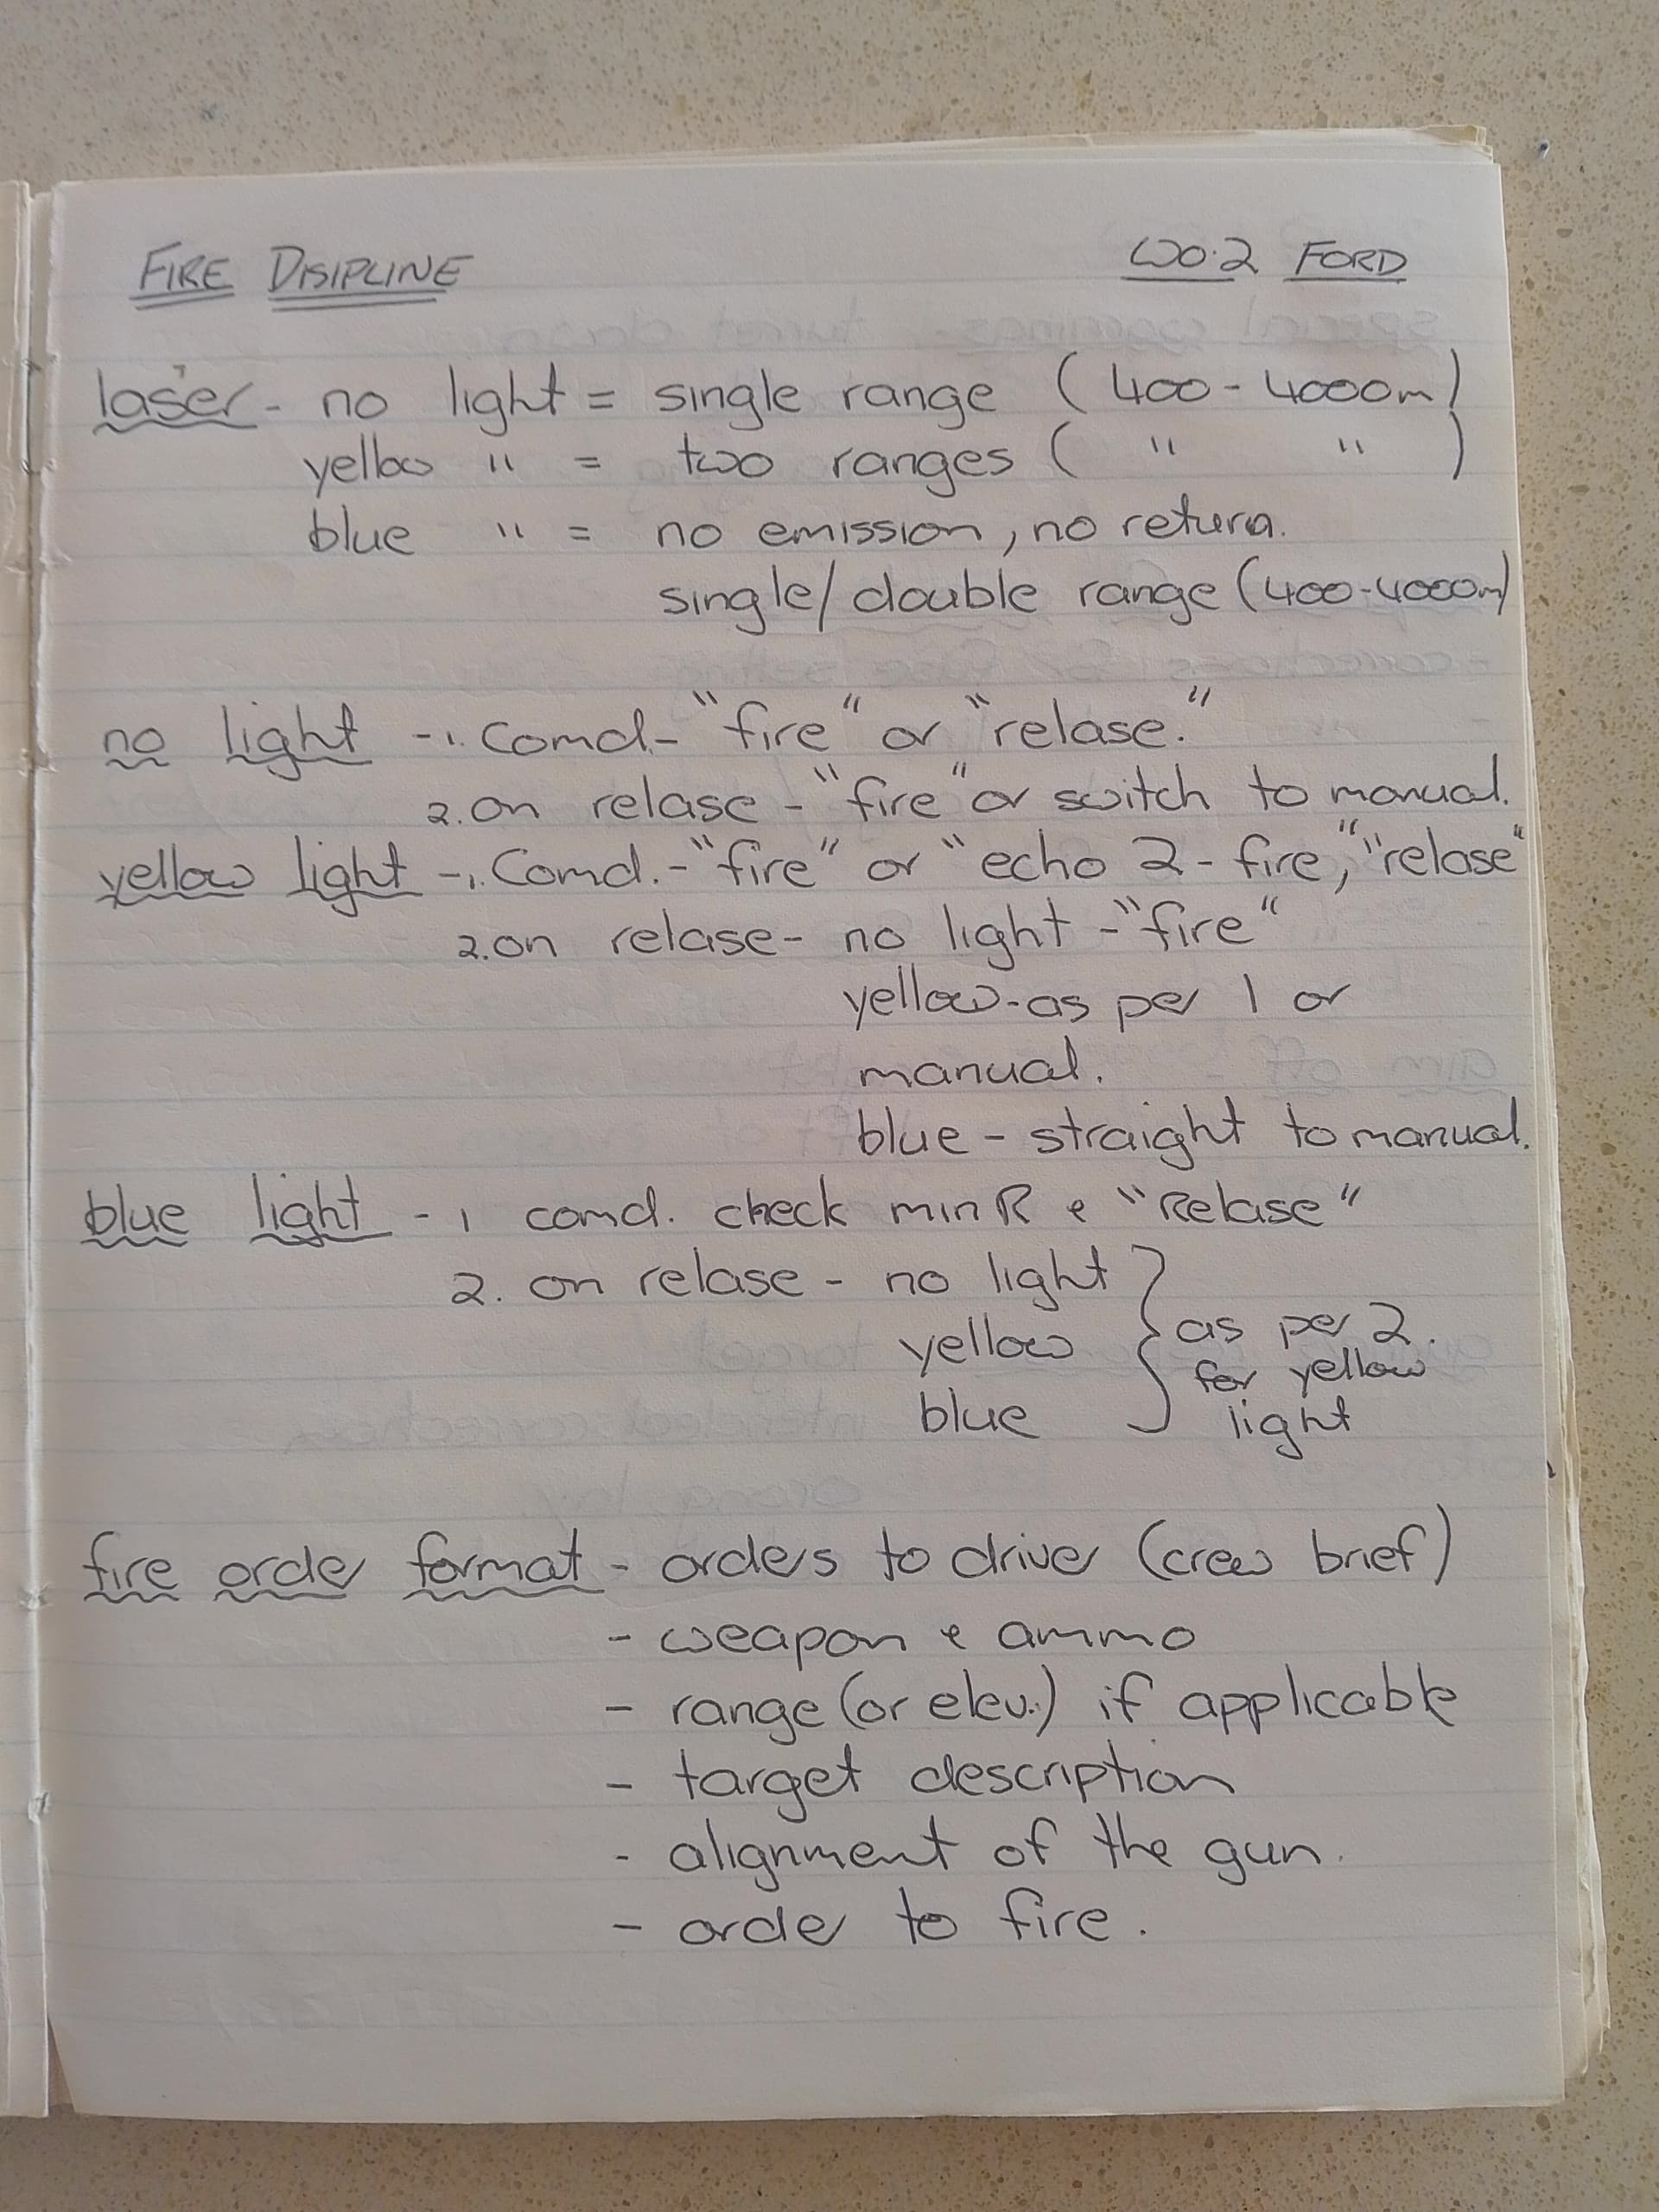 FIRE DISIPLINE WO.2 FORD
laser - no light = single range (400 - 4000m)
yellow " = two ranges ( " " )
blue " = no emission, no return.
single/double range (400-4000m)
no light - 1. Comd. - "fire" or "relase."
2. on relase - "fire" or switch to manual.
yellow light - 1. Comd. - "fire" or "echo 2 - fire," "relase"
2. on relase - no light - "fire"
yellow - as per 1 or
manual.
blue - straight to manual.
blue light - 1 comd. check min R & "Relase"
2. on relase - no light } as per 2.
yellow for yellow
blue light
fire order format - orders to driver (crew brief)
- weapon & ammo
- range (or elev.) if applicable
- target description
- alignment of the gun.
- order to fire.